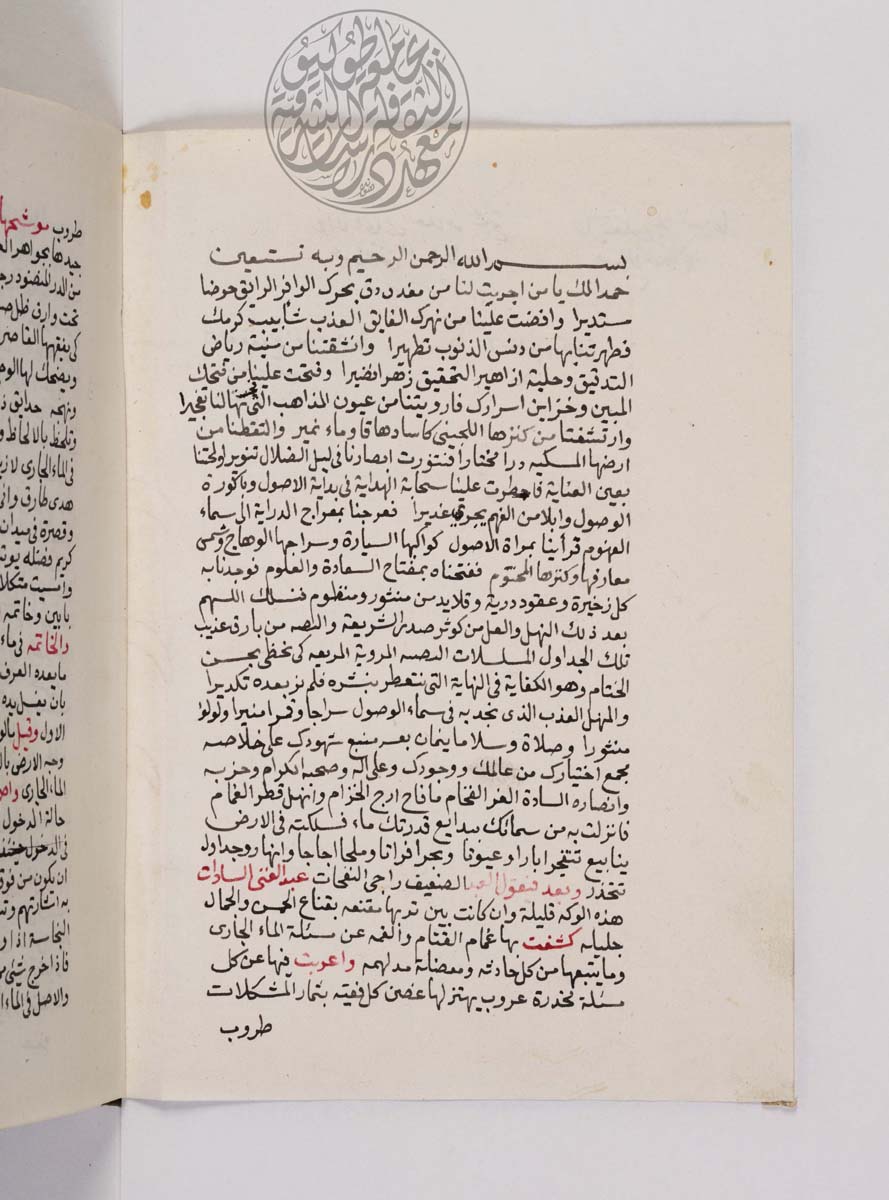 بسم الله الرحمن الرحيم وبه نستعين
حمدا لك يا من اجريت لنا من مغدودق بحرك الوافر الرايق حوضا
ستديرا وافضت علينا من نهرك الفايق العذب شابيب كرمك
فطهرتنا بها من دنس الذنوب تطهيرا وانشقتنا من رياض
التدقيق وحلية ازاهير التحقيق زهرا نضيرا وفتحت علينا من فتحك
المبين وخزاين اسرارك فارويتنا من عيون المذاهب التي فجرتها لنا تفجيرا
وارتشفنا من كنزها اللجيني كاسا دهاقا وماء نمير والتقطنا من
ارضها المسكيه درا مختارا فتنورت ابصارنا في ليل الضلال تنويرا ولحتنا
بعين العناية فامطرت علينا سحابة الهداية في بداية الاصول وباكورة
الوصول وابلا من الفهم يجري غديرا فعرجنا بمعراج الدراية الى سماء
الفهوم فرأينا بمراة الاصول كواكبها السيارة وسراجها الوهاج وشمس
معارفها وكنزها المختوم ففتحناه بمفتاح السعادة والعلوم فوجدنا به
كل زخيرة وعقود درية وقلايد من منثور ومنظوم فنسالك اللهم
بعد ذلك النهل والعل من كوثر صدر الشريعة من بارق عذيب
تلك الجداول المسلسلات المروية كي نحظى بحسن
الختام وهو الكفاية في النهاية التي نتعطر بنشره فلم نر بعده تكديرا
والمنهل العذب الذي نجد به في سماء الوصول سراجا وقمرا منيرا ولولوا
منثورا وصلاة وسلاما شهودك على خلاصه
مجمع اختيارك من عالمك ووجودك وعلى اله وصحبه الكرام وحزبه
وانصاره السادة الغر الفخام ما فاح ارج الخزام وانهل قطر الغمام
فانزلت به من سمائك ببدايع قدرتك ماء فسلكته في الارض
ينابيع تتفجر ابارا وعيونا وبحرا فراتا وملحا اجاجا وانهار وجداول
تتحدر وبعد فيقول العبد الضعيف راجي النفحات عبد الغني السادات
هذه الوكة قليلة وان كانت بين تربها مقنعه بقناع الحسن والجمال
جليله كشفت بها غمام القتام والغمه عن مسئلة الماء الجاري
وما يتبعها من كل حادثه ومعضلة مدلهمه واعربت فيها عن كل
مسئلة مخدرة عروب يهتز لها غصن كل فقيه بثمار المشكلات
طروب
طروب موشحها
من الدر المنضود
تحت وارق ظل
كي يفقهها القاصر
ويضحك لها
حدايق
وتلحظ بالالحاظ
في الماء الجاري
هدى طارق
وقصرة في ميدان
كريم فضله
وامسيت متكلا
بابين وخاتمه
والخاتمه في ماء
ما يعده العرف
بان يغسل يده
الاول وقيل
وجه الارض
الماء الجاري
حالة الدخول
في الدخول
ان يكون من فوق
به انتشارتهم
النجاسة اذا
فاذا خرج شيئ
والاصل في الماء